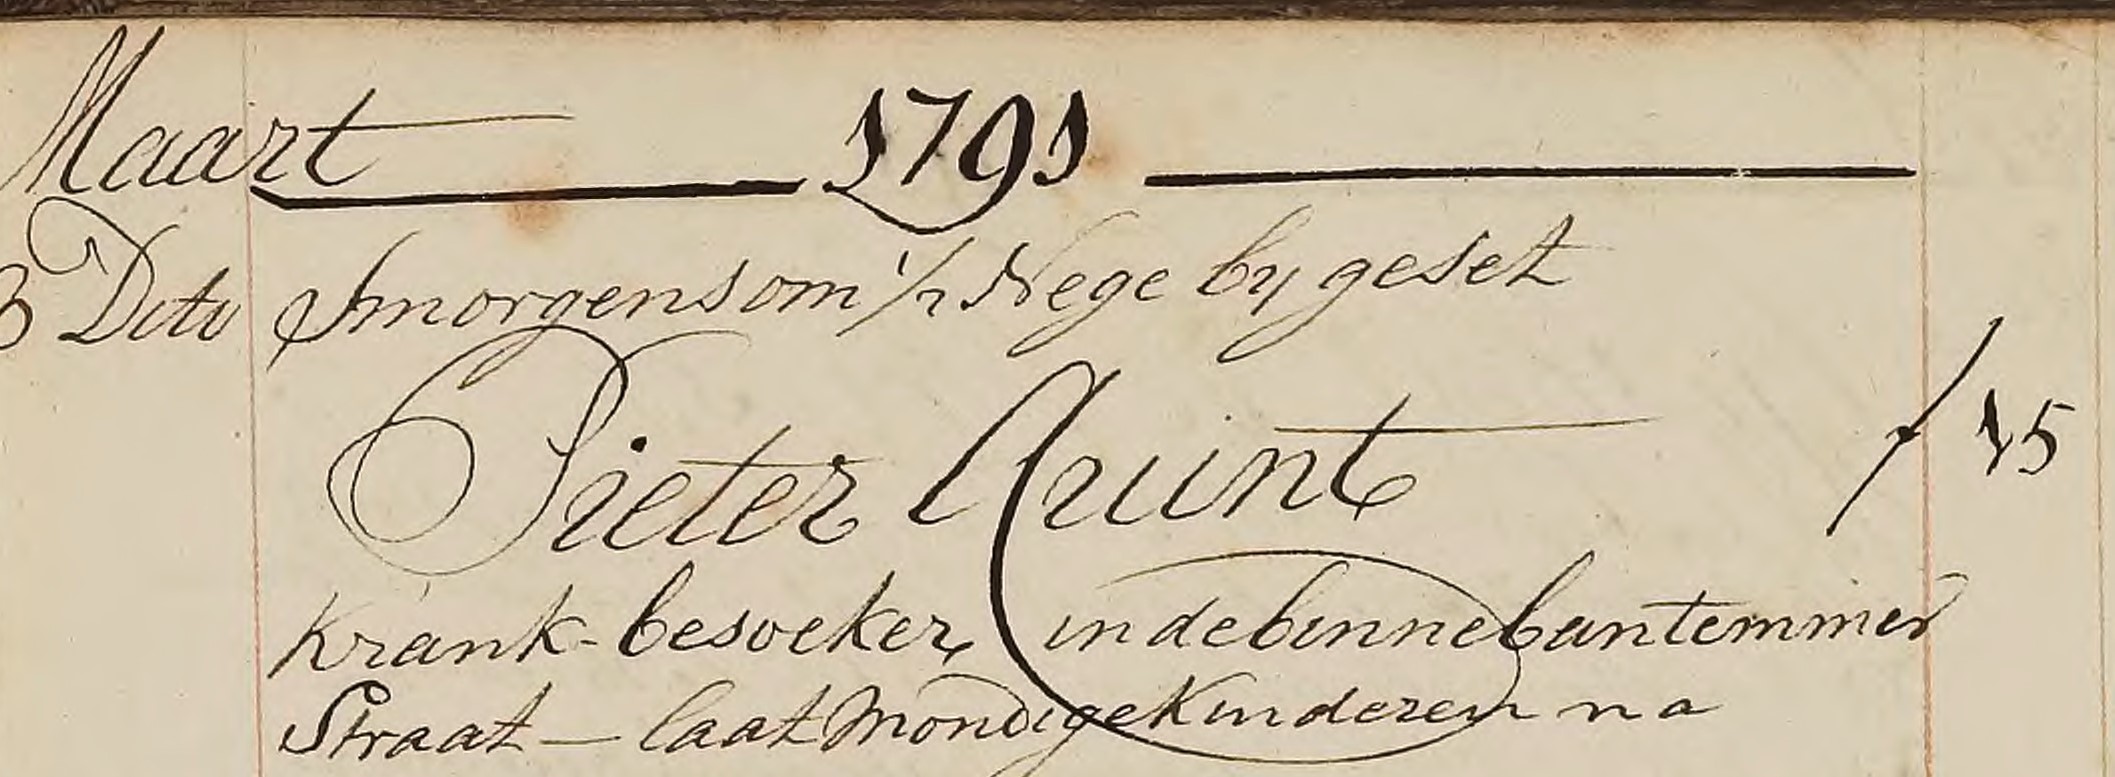 Maart 1791
3 Dito Smorgens om 1/2 Nege by geset
Pieter Quint f 15
Krank-besoeker in de binne bantemmer
Straat — laat mondige Kinderen na